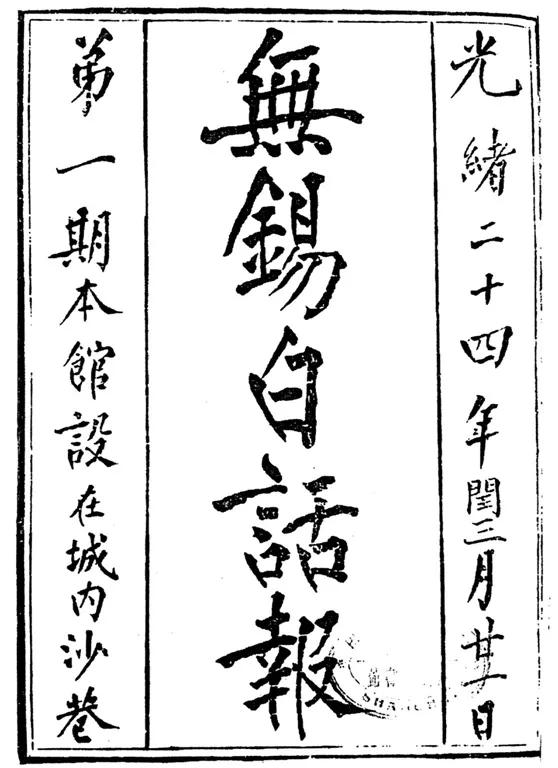 光緒二十四年閏三月廿一日
無錫白話報
第一期本館設在城内沙巷